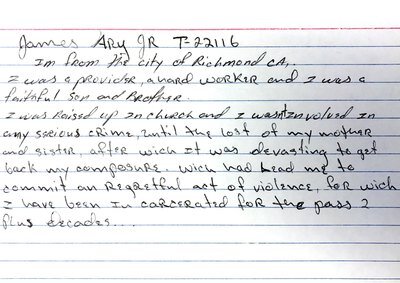 James Ary JR T-22116
Im from the city of Richmond CA,.
I was a provider, a hard worker and I was a
faithful son and Brother.
I was Raised up in church and I wasn't involved in
any serious crime, until the lost of my mother
and sister after wich it was devasting to get
back my composure. wich had Lead me to
commit an Regretful act of violence, for wich
I have been in carcerated for the pass 2
plus decades....